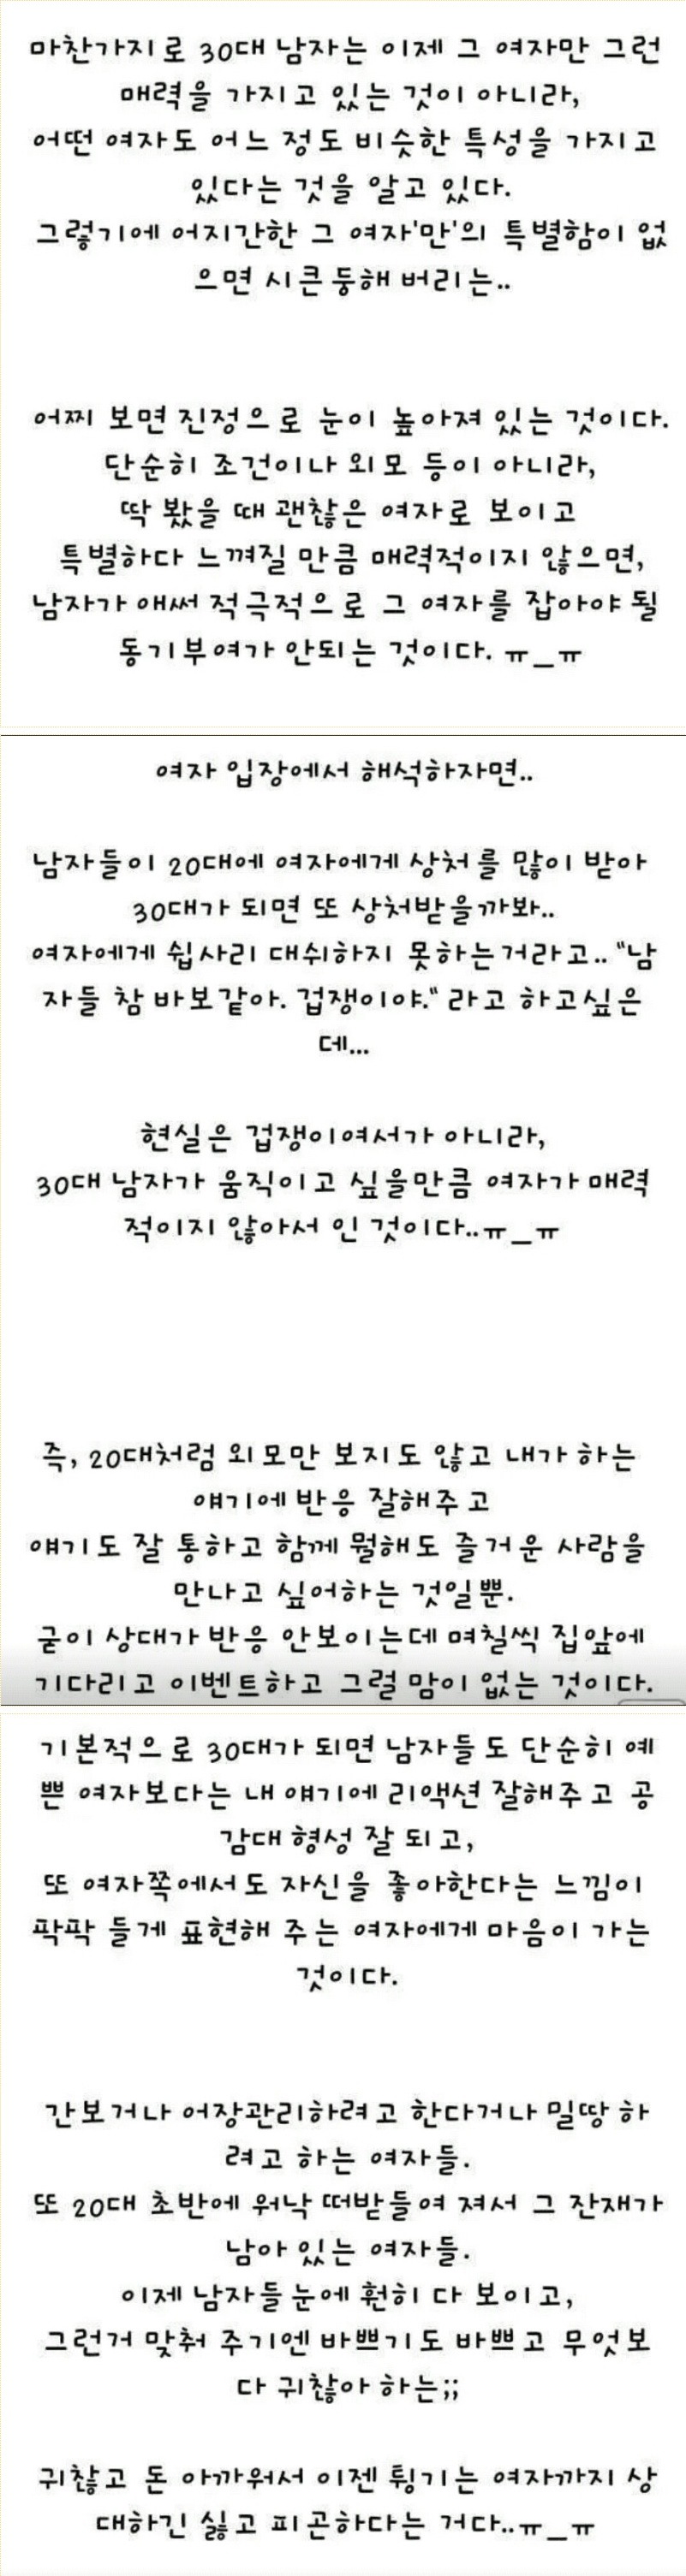 마찬가지로 30대 남자는 이제 그 여자만 그런
매력을 가지고 있는 것이 아니라,
어떤 여자도 어느 정도 비슷한 특성을 가지고
있다는 것을 알고 있다.
그렇기에 어지간한 그 여자'만'의 특별함이 없
으면 시큰둥해 버리는..
어찌 보면 진정으로 눈이 높아져 있는 것이다.
단순히 조건이나 외모 등이 아니라,
딱 봤을 때 괜찮은 여자로 보이고
특별하다 느껴질 만큼 매력적이지 않으면,
남자가 애써 적극적으로 그 여자를 잡아야 될
동기부여가 안되는 것이다. ㅠ_ㅠ
여자 입장에서 해석하자면..
남자들이 20대에 여자에게 상처를 많이 받아
30대가 되면 또 상처받을까봐..
여자에게 쉽사리 대쉬하지 못하는거라고.. "남
자들 참 바보같아. 겁쟁이야." 라고 하고싶은
데...
현실은 겁쟁이여서가 아니라,
30대 남자가 움직이고 싶을만큼 여자가 매력
적이지 않아서 인 것이다..ㅠ_ㅠ
즉, 20대처럼 외모만 보지도 않고 내가 하는
얘기에 반응 잘해주고
얘기도 잘 통하고 함께 뭘해도 즐거운 사람을
만나고 싶어하는 것일뿐.
굳이 상대가 반응 안보이는데 며칠씩 집앞에
기다리고 이벤트하고 그럴 맘이 없는 것이다.
기본적으로 30대가 되면 남자들도 단순히 예
쁜 여자보다는 내 얘기에 리액션 잘해주고 공
감대 형성 잘 되고,
또 여자쪽에서도 자신을 좋아한다는 느낌이
팍팍 들게 표현해 주는 여자에게 마음이 가는
것이다.
간보거나 어장관리하려고 한다거나 밀땅 하
려고 하는 여자들.
또 20대 초반에 워낙 떠받들여 져서 그 잔재가
남아 있는 여자들.
이제 남자들 눈에 훤히 다 보이고,
그런거 맞춰 주기엔 바쁘기도 바쁘고 무엇보
다 귀찮아 하는;;
귀찮고 돈 아까워서 이젠 튕기는 여자까지 상
대하긴 싫고 피곤하다는 거다..ㅠ_ㅠ